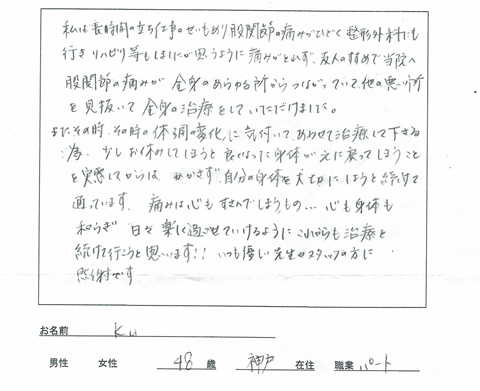 私は長時間の立ち仕事のせいもあり股関節の痛みがひどく整形外科にも
行きリハビリ等もしましたが思うように痛みがとれず、友人の すすめで当院へ
股関節の痛みが全身のあらゆる所からつながっていて他の悪い所
を見抜いて全身の治療をしていただけました。
またその時、その時の体調の変化に気付いて、あわせて治療して下さる
為、少しお休みしてしまうと良くなった身体が元に戻ってしまうこと
を実感してからは、かかさず、自分の身体を大切にしようと続けて
通っています。痛みは心もすさんでしまうもの…心も身体も
和らぎ 日々楽しく過ごせていけるようにこれからも治療を
続けて行こうと思います!! いつも優しい先生やスタッフの方に
感謝です
お名前 K.U
男性 女性 48 歳 神戸 在住 職業 パート